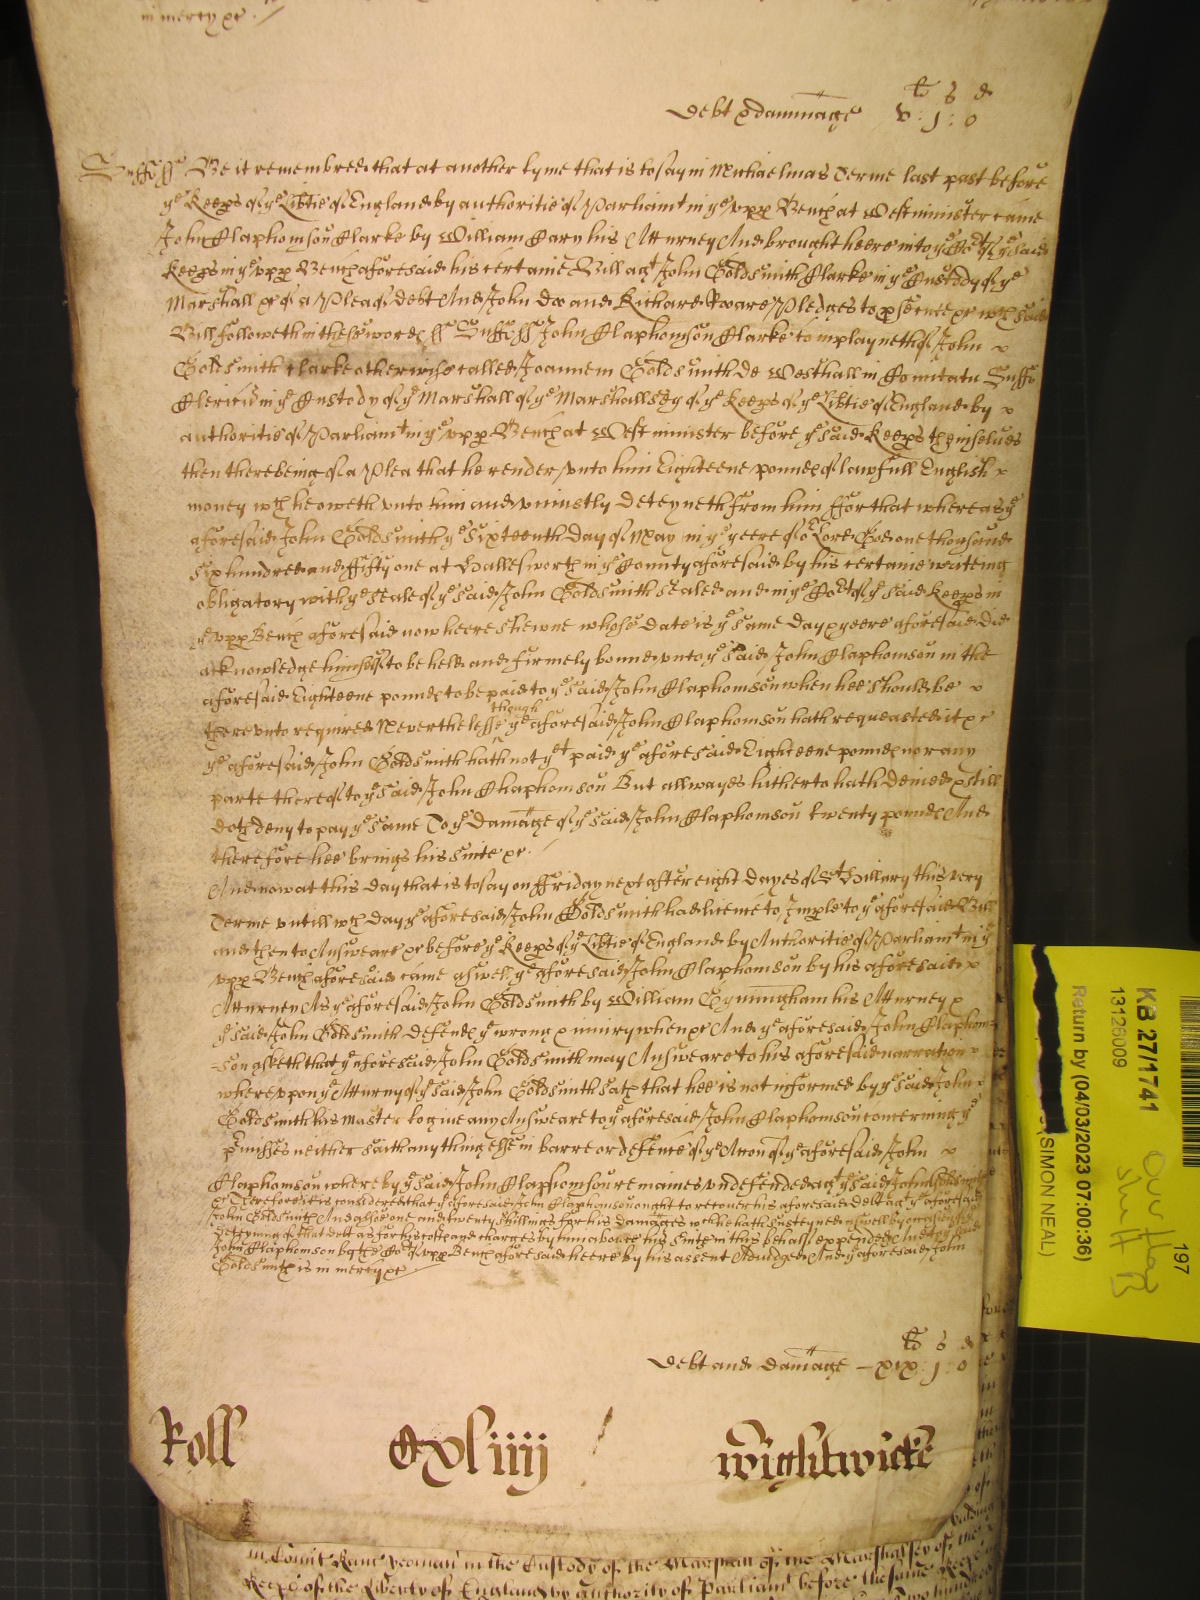 in mercy &c
li s d
Debt & dammage v : j : 0
Suff ss Be it remembred that at another tyme that is to say in Michaelmas Terme last past before
ye Keeps of ye Libtie of England by authoritie of Parliamt in ye upp Bench at Westminister came
John Claphomson Clarke by William Cary his Atturney And brought heere into ye Cort of ye said
Keeps in ye upp Bench aforesaid his certaine Bill agt John Goldsmith Clarke in ye Custody of ye
Marshall &c of a Plea of debt And John Doe and Richard Roe are Pledges to psecute &c wch said
Bill followeth in these words ss Suff ss John Claphomson Clarke complayneth of John
Goldsmith Clarke otherwise called Joannem Goldsmith de Westhall in Comitatu Suff
Clericu in ye Custody of ye Marshall of ye Marshallsey of ye Keeps of ye Libtie of England by
authoritie of Parliamt in ye upp Bench at Westminister before ye said Keeps themselves
then there being of a Plea that he render unto him Eighteene pounds of lawfull English
money wch he oweth unto him and uniustly deteyneth from him ffor that whereas ye
aforesaid John Goldsmith ye sixteenth day of May in ye yeere of or Lord God one thousand
six hundred and ffifty one at Hallesworth in ye County aforesaid by his certaine writeing
obligatory with ye seale of ye said John Goldsmith sealed and in ye Cort of ye said Keeps in
ye upp Bench aforesaid now heere shewne whose date is ye same day & yeere aforesaid did
acknowledge himself to be held and firmely bound unto ye said John Claphomson in the
aforesaid Eighteene pounds to be paid to ye said John Claphomson when hee should be
thereunto required Neverthelesse though ye aforesaid John Claphomson hath requeasted it &c
ye aforesaid John Goldsmith hath not yet paid ye aforesaid Eighteene pounds nor any
parte thereof to ye said John Claphomson But allwayes hitherto hath denied & still
doth deny to pay ye same To ye damage of ye said John Claphomson twenty pounds And
therefore hee brings his suite &c
And now at this day that is to say on ffriday next after eight dayes of St Hillary this very
Terme untill wch day ye aforesaid John Goldsmith had licence to Imple to ye aforesaid Bill
and then to Answeare &c before ye Keeps of ye Libtie of England by Authoritie of Parliamt in ye
upp Bench aforesaid came aswell ye aforesaid John Claphomson by his aforesaid
Atturney As ye aforesaid John Goldsmith by William Cynningham his Atturney &
ye said John Goldsmith defends ye wrong & iniury when &c And ye aforesaid John Claphom
son asketh that ye aforesaid John Goldsmith may Answeare to his aforesaid narration
whereupon ye Atturny of ye said John Goldsmith sath that hee is not informed by ye said John
Goldsmith his master to give any Answeare to ye aforesaid John Claphomson concerning ye
pmisses neither saith any thing else in barre or defence of ye Accon of ye aforesaid John
Claphomson whereby ye said John Claphomson remaines undefended agt ye said John Goldsmith
&c Therefore it is considered that ye aforesaid John Claphomson ought to recover his aforesaid debt agt ye aforesaid
John Goldsmith And allsoe one and twenty shillings for his damages which he hath susteyned aswell by occasion of
deteyning of that debt as for his costs and charges by him about his suite in this behalfe expended
John Claphomson by the Cort of ye upp Bench aforesaid heere by his assent Adiudged And ye aforesaid John
Goldsmith is in mercy &c
li s d
Debt and damage – xix : j : 0
Roll Cxliiij Wightwicke
in Comit Kanc yeoman in the Custody of the Marshall of the Marshalsey of the
Keeps of the Liberty of England by authority of Parliamt before the same Keeps
KB 27/1741
13126009
Return by (04/03/2023 07:00:36)
(SIMON NEAL)
197